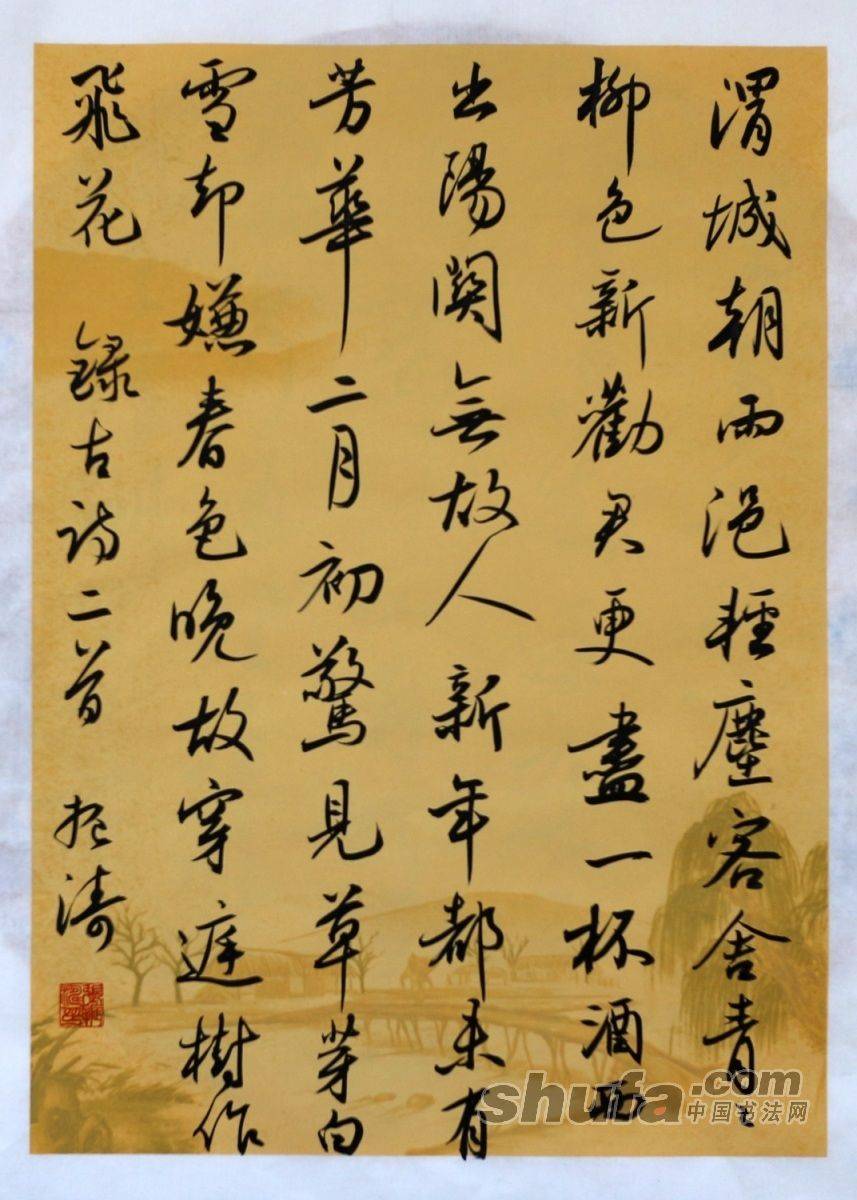 渭城朝雨浥輕塵客舍青〻
柳色新勸君更盡一杯酒西
出陽關無故人新年都未有
芳華二月初驚見草芽白
雪却嫌春色晚故穿庭樹作
飛花 錄古詩二首 振濤
shufa.com
中国书法网